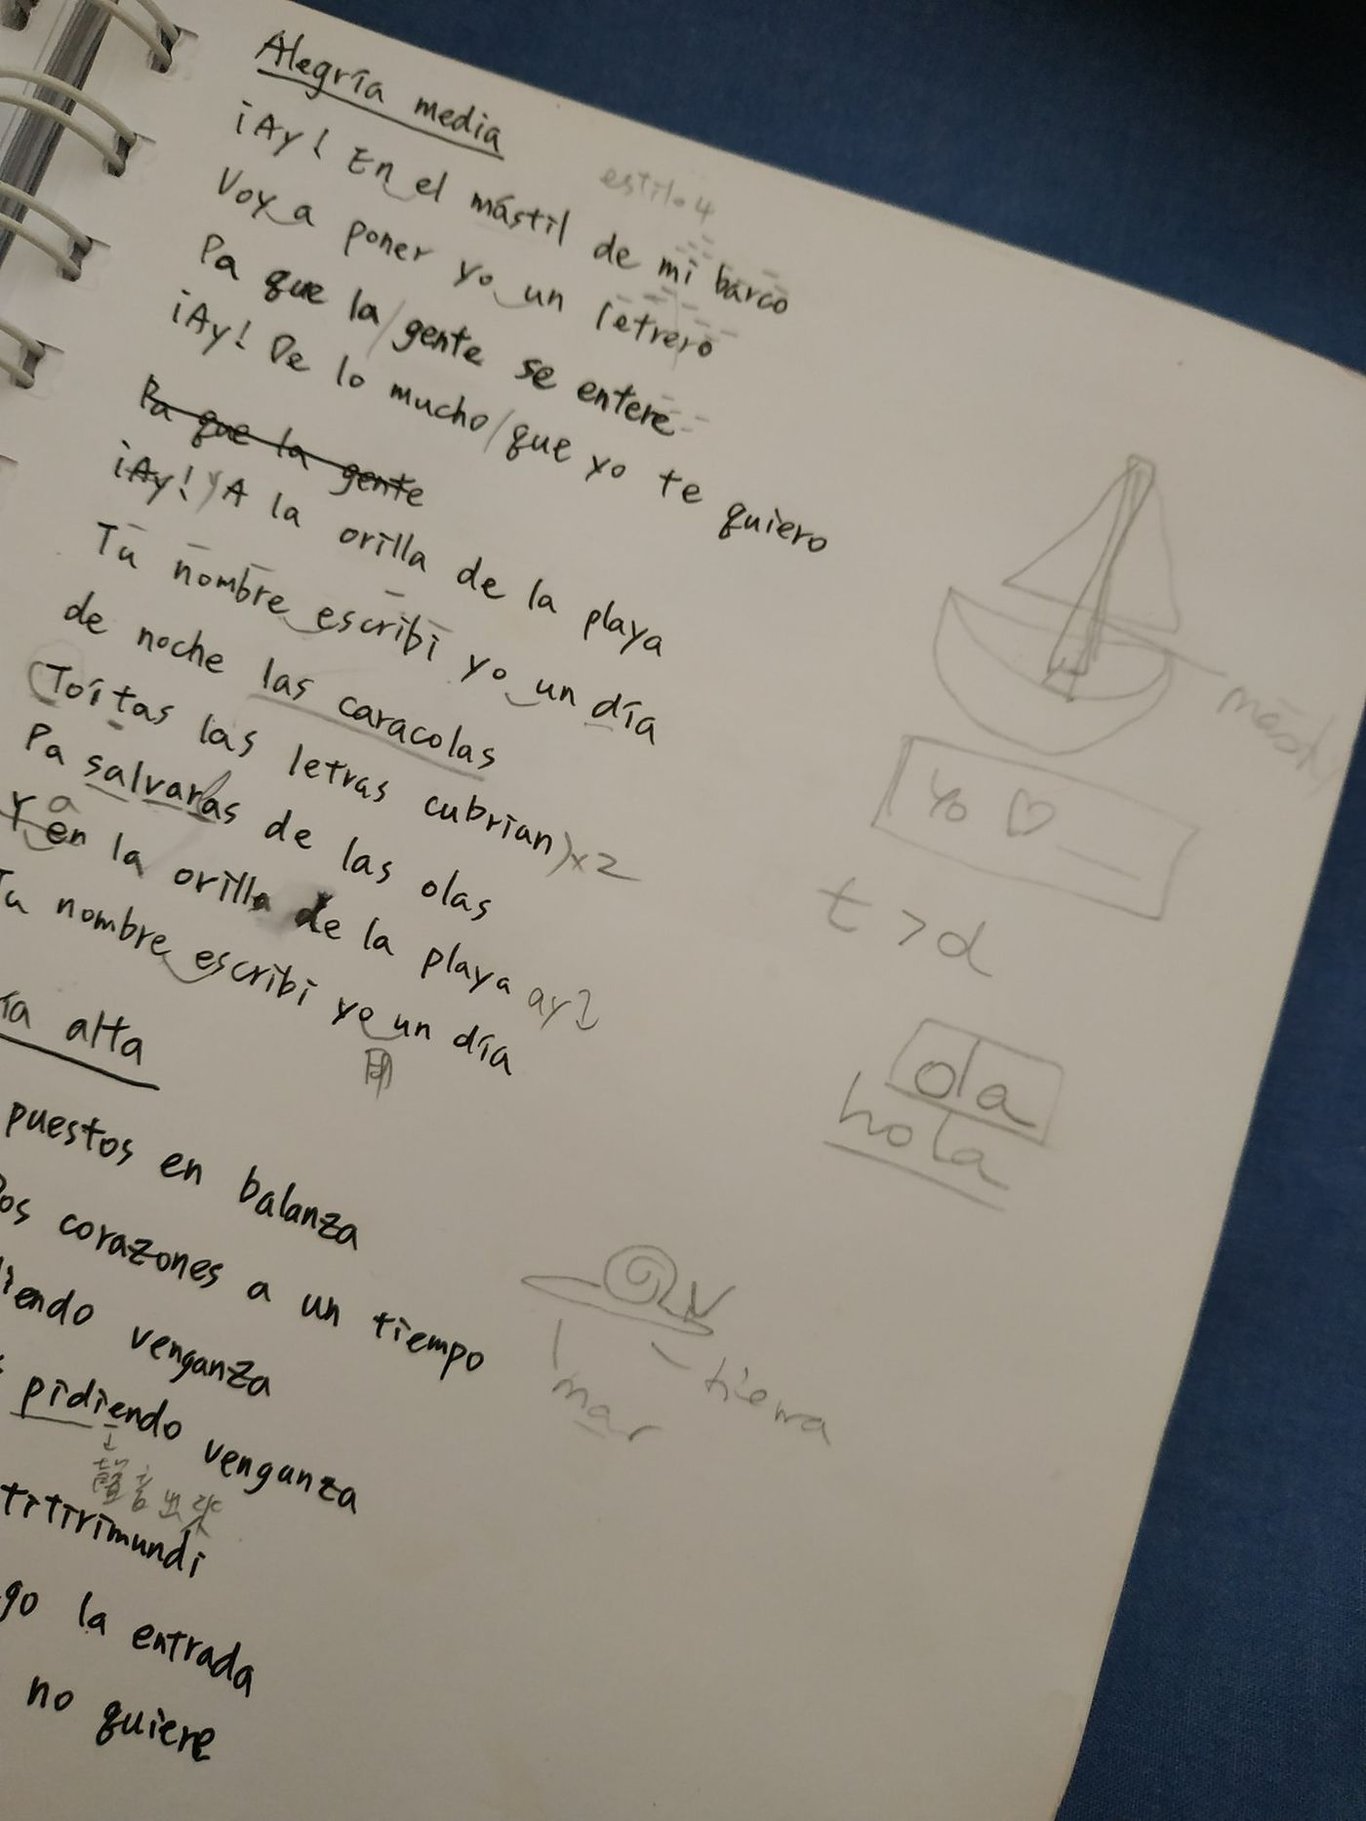 Alegría media
estilo 4
¡Ay! En el mástil de mi barco
Voy a poner yo un letrero
Pa que la / gente se entere
¡Ay! De lo mucho / que yo te quiero
Pa que la gente
¡Ay! Y A la orilla de la playa
Tu nombre escribí yo un día
de noche las caracolas
(Toítas las letras cubrían) x2
Pa salvarlas de las olas
Y en a la orilla de la playa ay
Tu nombre escribí yo un día
alta
puestos en balanza
corazones a un tiempo
venganza
pidiendo venganza
聲音出來
titirimundi
la entrada
no quiere
Yo ♡
t > d
ola
hola
mar
tierra